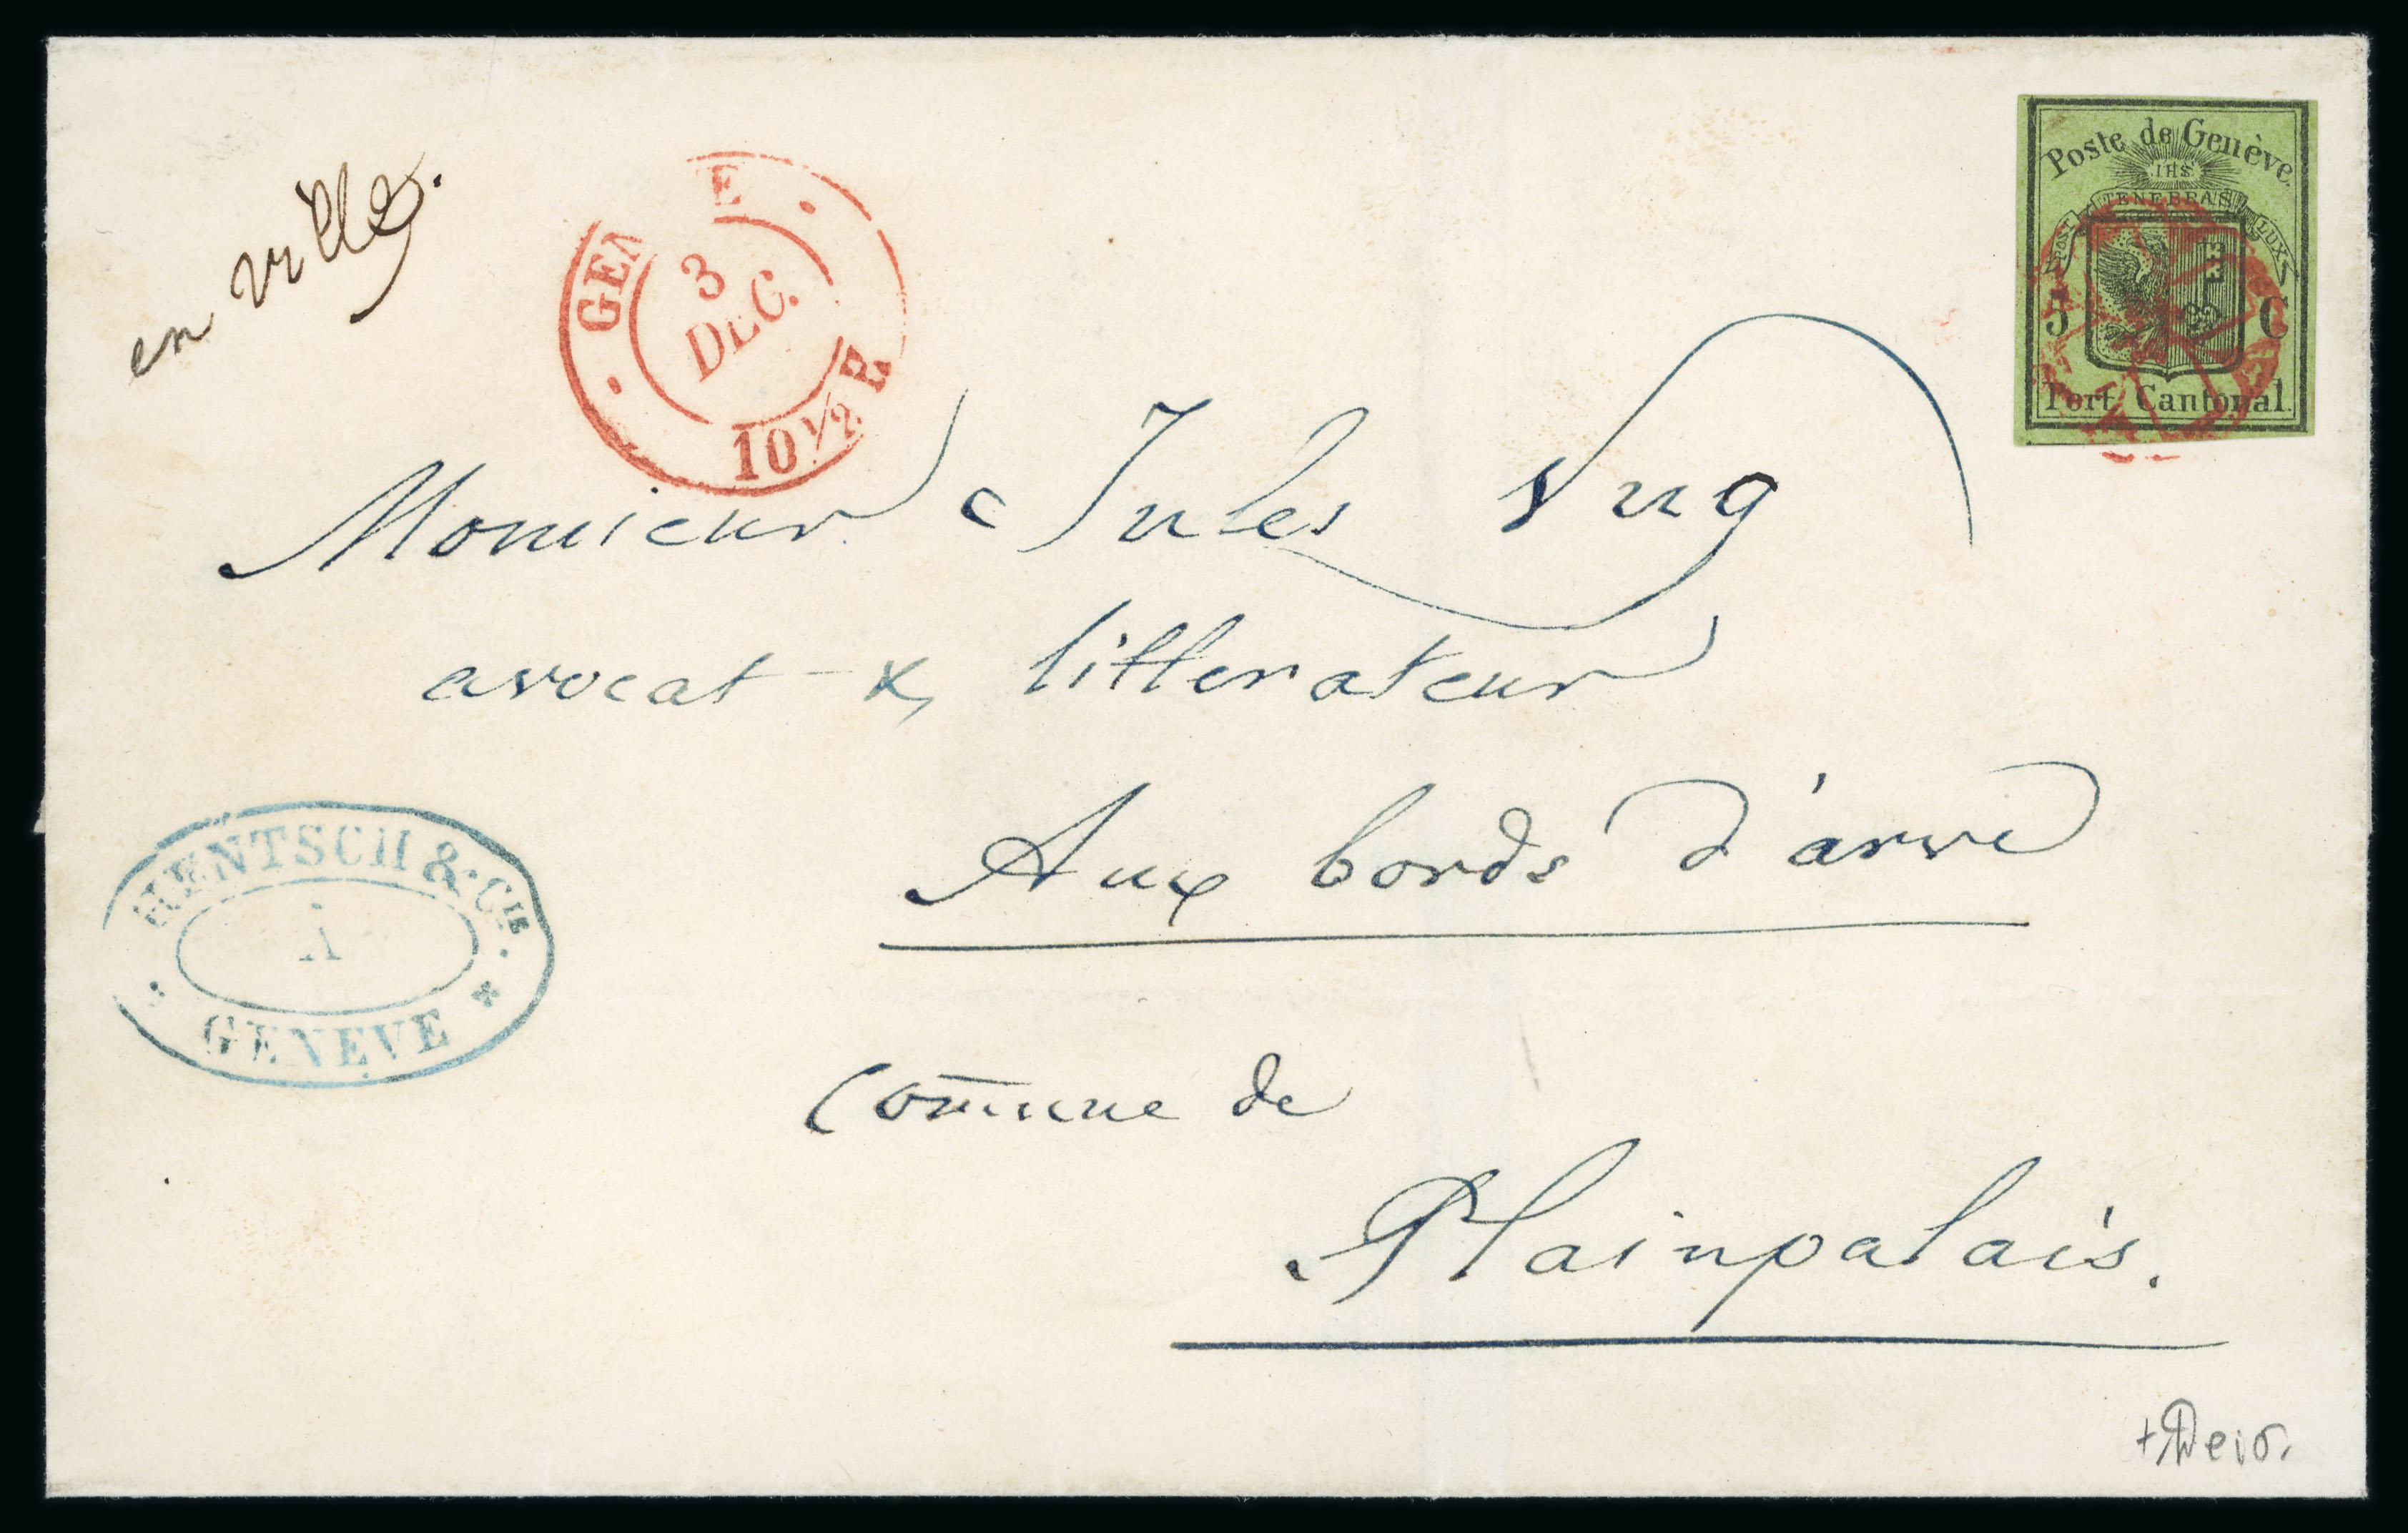 en ville.
GENEVE
3
DEC.
10 1/2 E
Poste de Genève.
IHS
POST TENEBRAS LUX
5 C
Port Cantonal.
Monsieur Jules Vuy
avocat & litterateur
Aux bords d'arve
HENTSCH & Cie.
À
GENEVE
Com̄une de
Plainpalais.